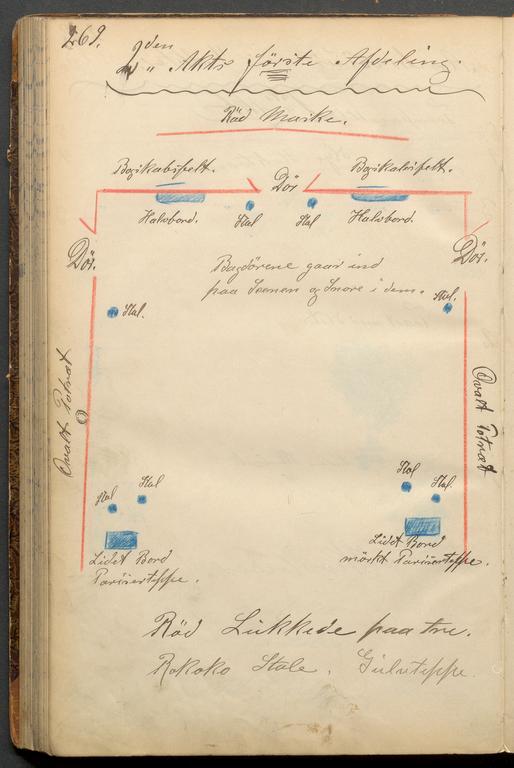 269.
2den Akts förste Afdeling.
Röd Maske.
Dör
Halvbord.
Stol
Stol
Halvbord.
Dör.
Dör.
Bagdörene gaar ind
paa Scenen og Snore i dem.
Stol.
Stol.
Ovalt Potræt
Ovalt Potræt
Stol
Stol
Stol
Stol.
Lidet Bord
Pariserteppe.
Lidet Bord
mörkt Pariserteppe.
Röd Lukkede paa tre.
Rokoko Stole. Gulvteppe.